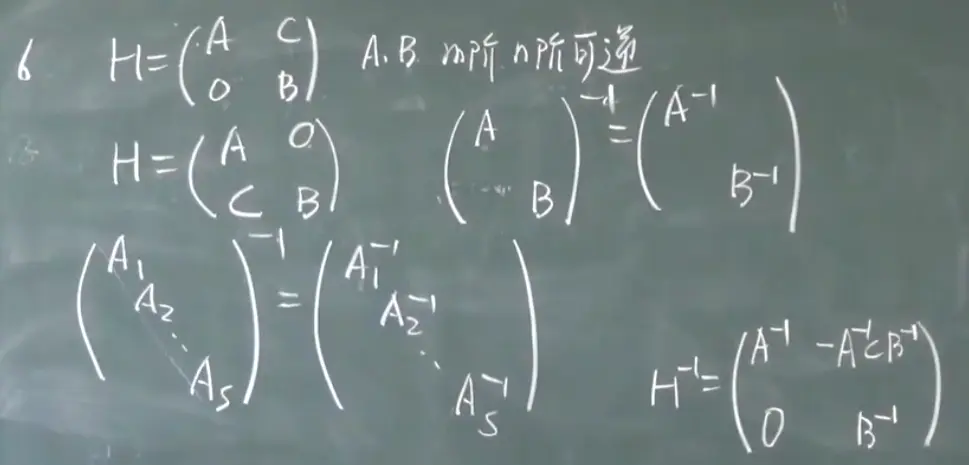 6 H=(A C; 0 B) A.B m阶 n阶可逆
H=(A 0; C B) (A ; B)^{-1}=(A^{-1} ; B^{-1})
(A_1 A_2 ⋱ A_s)^{-1}=(A_1^{-1} A_2^{-1} ⋱ A_s^{-1})
H^{-1}=(A^{-1} -A^{-1}CB^{-1}; 0 B^{-1})